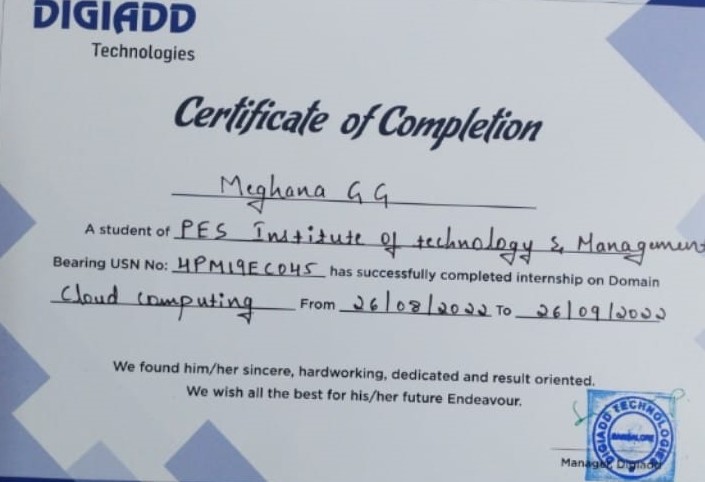 DIGIADD
Technologies
Certificate of Completion
Meghana G G
A student of PES Institute of technology & Management
Bearing USN No: 4PM19EC045 has successfully completed internship on Domain
Cloud Computing From 26/08/2022 To 26/09/2022
We found him/her sincere, hardworking, dedicated and result oriented.
We wish all the best for his/her future Endeavour.
DIGIADD TECHNOLOGIES
BANGALORE
Manager, Digiadd